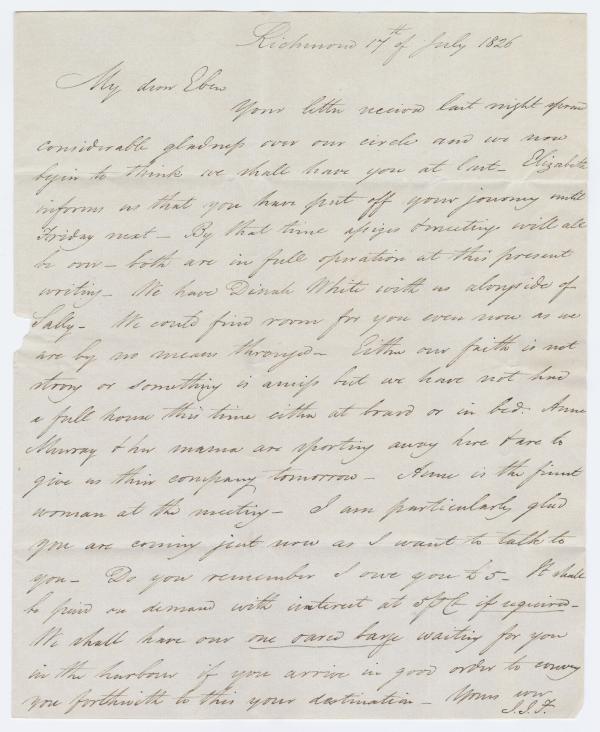 Richmond 17th of July 1826
My dear Eben
Your letter received last night spread
considerable gladness over our circle and we now
begin to think we shall have you at last - Elizabeth
informs us that you have put off your journey until
Friday next - By that time assizes & meetings will all
be over - both are in full operation at this present
writing - We have Dinah White with us alongside of
Sally - We could find room for you even now as we
are by no means thronged - Either our faith is not
strong or something is amiss but we have not had
a full house this time either at board or in bed. Anne
Murray & her mama are sporting away here & are to
give us their company tomorrow - Anne is the finest
woman at the meeting - I am particularly glad
you are coming just now as I want to talk to
you - Do you remember I owe you £5 - It shall
be paid on demand with interest at 5 pCt if required -
We shall have our one oared barge waiting for you
in the harbour if you arrive in good order to convey
you forthwith to this your destination - Yours ever
J.J.F.